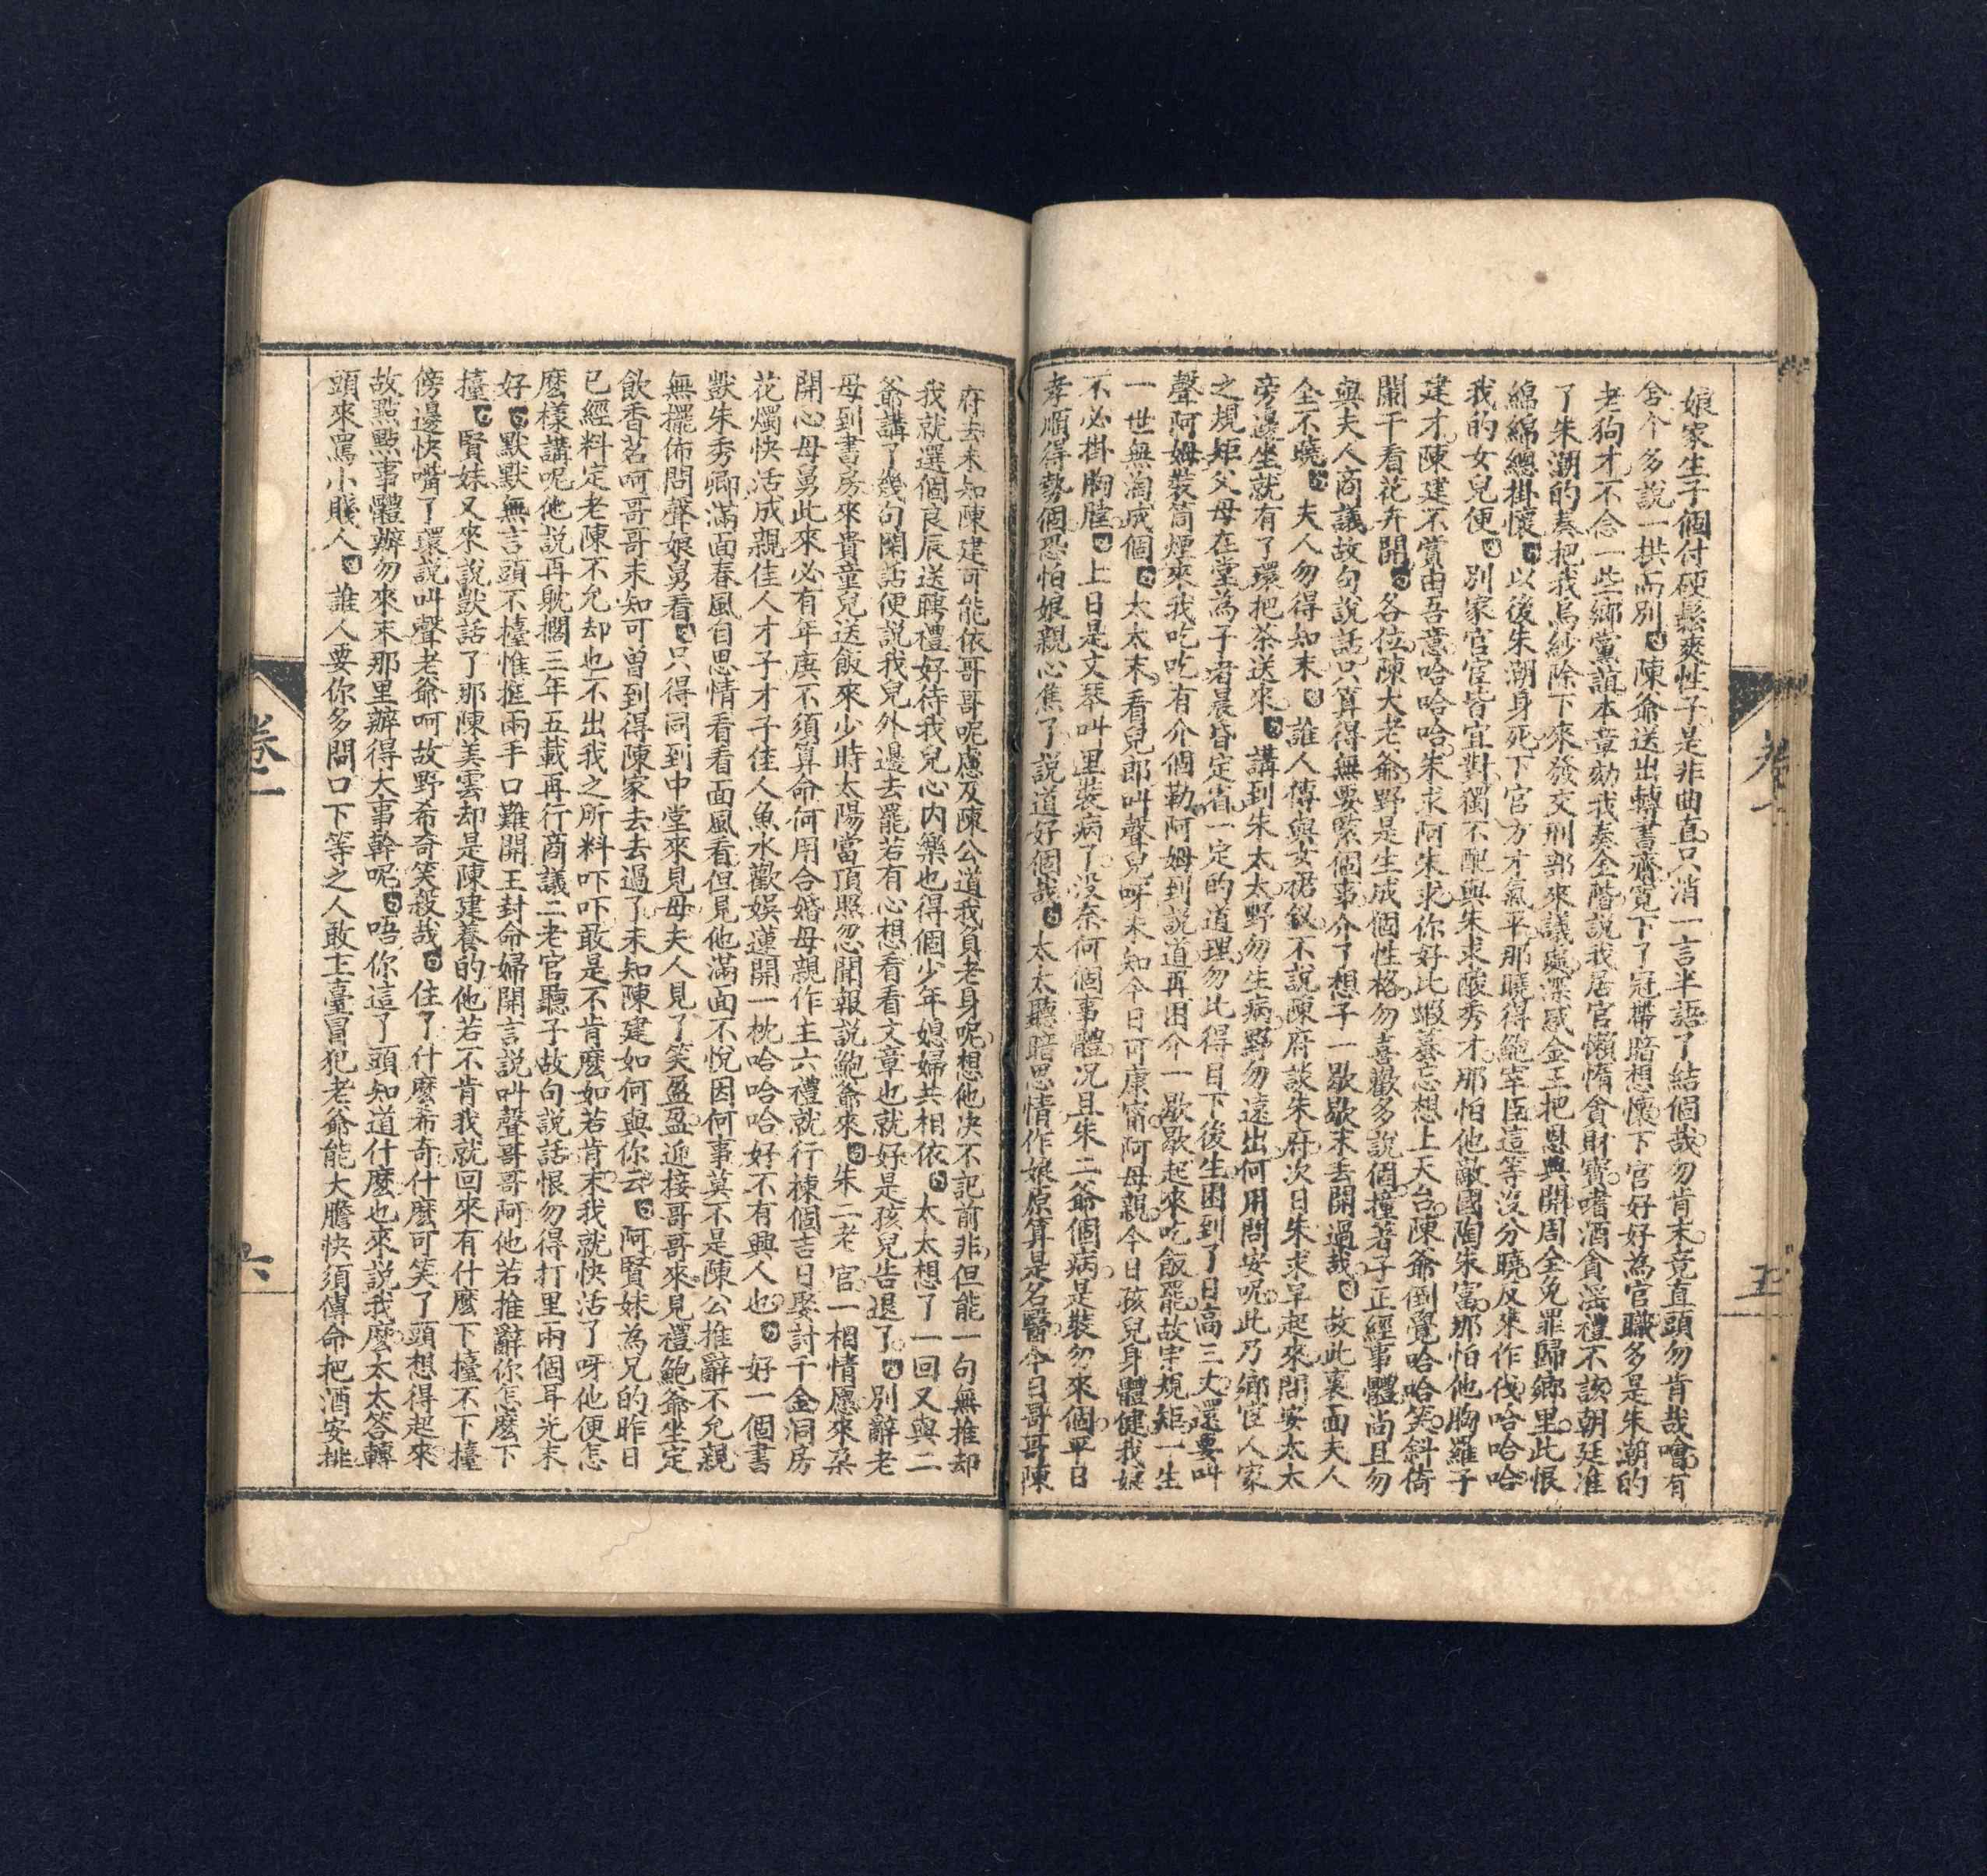 娘家生子個付硬鬆爽性子是非曲直只消一言半語了結個哉勿肯末竟直頭勿肯哉噲有
舍个多說一拱而別白陳爺送出轉書齋寬下了冠帶暗想懷下官好好為官職多是朱潮的
老狗才不念一些鄉黨誼本章劾我奏金階說我居官懶惰貪財寶嗜酒貪淫禮不該朝廷准
了朱潮的奏把我烏紗除下來發交刑部來議處深感金王把恩典開周全免罪歸鄉里此恨
綿綿總掛懷白以後朱潮身死下官方才氣平那曉得鮑宰臣這等沒分曉反來作伐哈哈哈
我的女兒便白別家官宦皆宜對獨不配與朱求酸秀才那怕他敵國陶朱富那怕他胸羅子
建才陳建不賞由吾意哈哈哈朱求阿朱求你好比蝦蟇忘想上天台陳爺倒覺哈哈笑斜倚
闌干看花卉開白各位陳大老爺野是生成個性格勿喜歡多說個撞著子正經事體尚且勿
與夫人商議故句說話只算得無要緊個事介了想子一歇歇末丟開過哉白故此裏面夫人
全不曉白夫人勿得知末白誰人傳與女裙釵不說陳府談朱府次日朱求早起來問安太太
旁邊坐就有了環把茶送來白講到朱太太野勿生病野勿遠出何用問安呢此乃鄉宦人家
之規矩父母在堂為子者晨昏定省一定的道理勿比得目下後生困到了日高三丈還要叫
聲阿姆裝筒煙來我吃吃有介個勒阿姆到說道再困介一歇歇起來吃飯罷故串規矩一生
一世無淘成個白太太末看兒郎叫聲兒呀未知今日可康甯阿母親今日孩兒身體健我娘
不必掛胸膛白上日是文琴叫里裝病了沒奈何個事體況且朱二爺個病是裝勿來個平日
孝順得勢個恐怕娘親心焦了說道好個哉白太太聽暗思情作娘原算是名醫今日哥哥陳
府去未知陳建可能依哥哥呢慮及陳公道我負老身呢想他决不記前非但能一句無推却
我就選個良辰送聘禮好待我兒心内樂也得個少年媳婦共相依白太太想了一回又與二
爺講了幾句閑話便說我兒外邊去罷若有心想看看文章也就好是孩兒告退了白別辭老
母到書房來貴童兒送飯來少時太陽當頂照忽聞報說鮑爺來白朱二老官一相情愿來杂
開心母舅此來必有年庚不須算命何用合婚母親作主六禮就行棟個吉日娶討千金洞房
花燭快活成親佳人才子才子佳人魚水歡娱蓮開一枕哈哈哈好不有興人也白好一個書
獃朱秀卿滿面春風自思情看看面風看但見他滿面不悅因何事莫不是陳公推辭不允親
無擺佈問聲娘舅看白只得同到中堂來見母夫人見了笑盈盈迎接哥哥來見禮鮑爺坐定
飲香茗呵哥哥未知可曾到得陳家去去過了未知陳建如何與你云白阿賢妹為兄的昨日
已經料定老陳不允却也不出我之所料吓吓敢是不肯麽如若肯末我就快活了呀他便怎
麽樣講呢他說再躭擱三年五載再行商議二老官聽子故句說話恨勿得打里兩個耳光末
好白默默無言頭不擡惟搓兩手口難開王封命婦開言說叫聲哥哥阿他若推辭你怎麽下
擡白賢妹又來說獃話了那陳美雲却是陳建養的他若不肯我就回來有什麽下擡不下擡
傍邊快嘴了環說叫聲老爺呵故野希奇笑殺哉白住了什麽希奇什麽可笑了頭想得起來
故㸃㸃事體辦勿來末那里辦得大事幹呢白唔你這了頭知道什麽也來說我麽太太答轉
頭來罵小賤人白誰人要你多開口下等之人敢上臺冒犯老爺能大膽快須傳命把酒安排
卷一
五
卷一
六